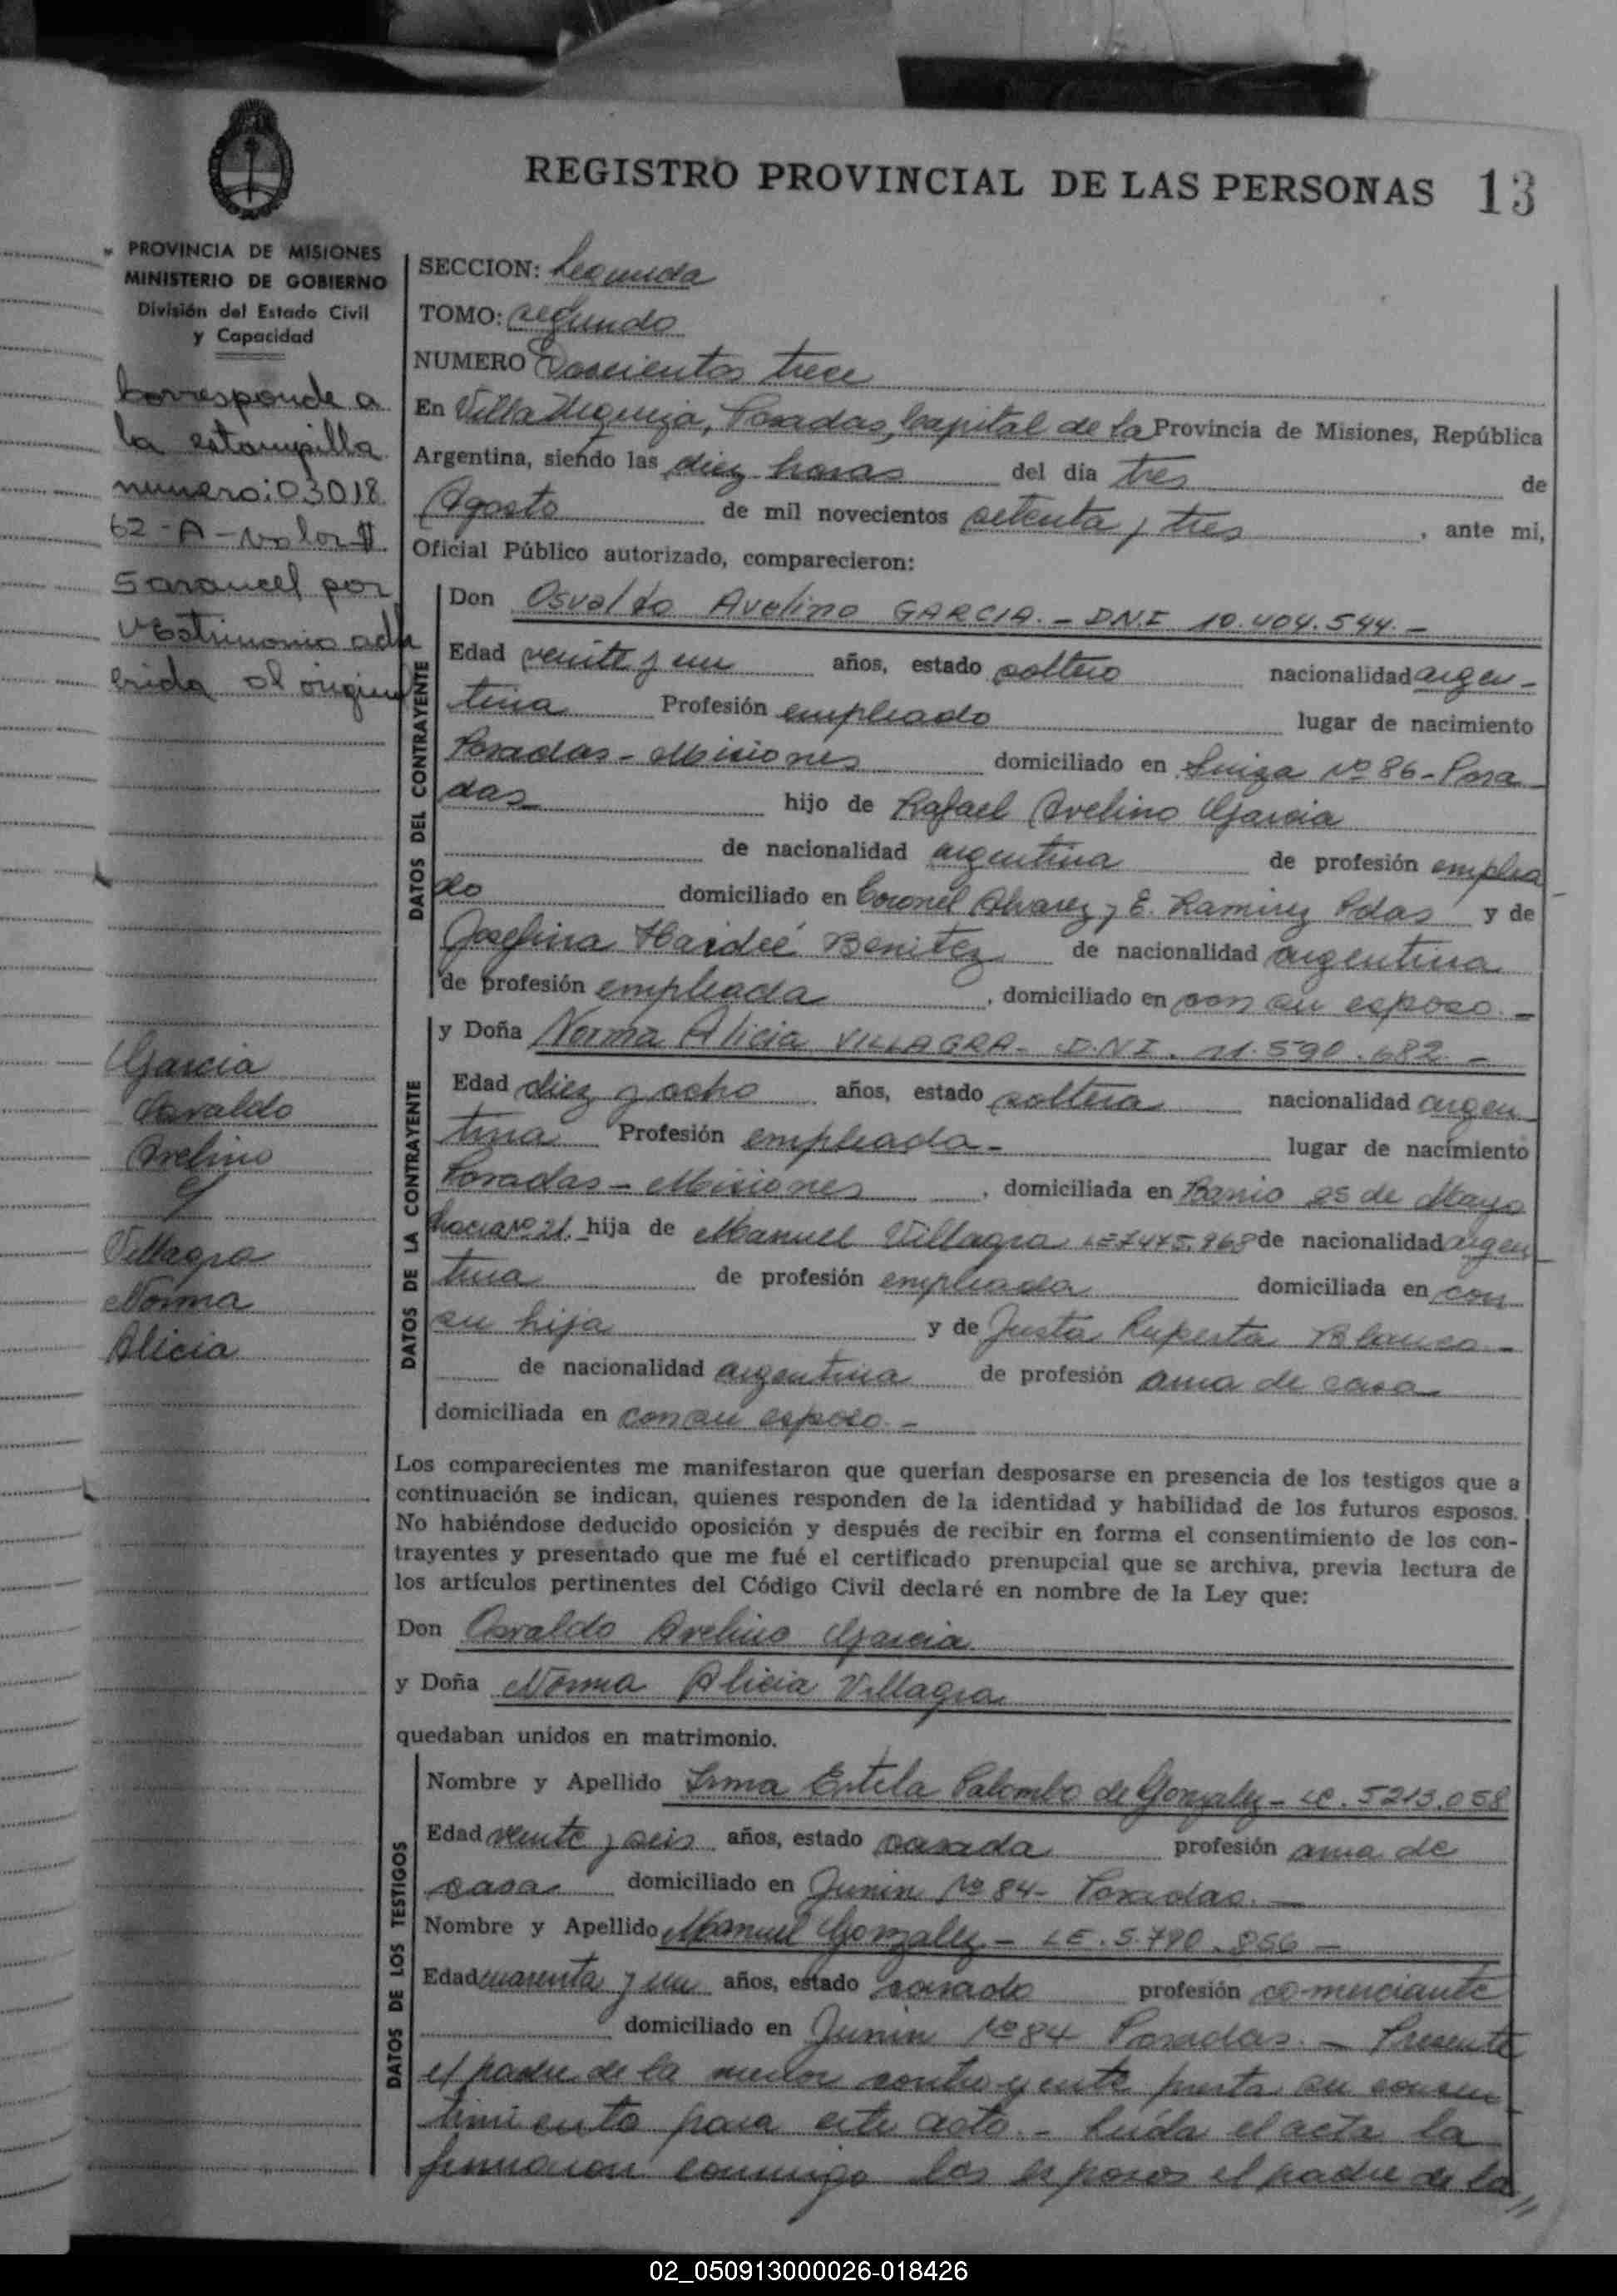 REGISTRO PROVINCIAL DE LAS PERSONAS 13
PROVINCIA DE MISIONES
MINISTERIO DE GOBIERNO
División del Estado Civil
y Capacidad
Corresponde a
la estampilla
numero: 03018
62-A-valor $
5 arancel por
testimonio adh
erida al origina
Garcia
Osvaldo
Avelino
y
Villagra
Norma
Alicia
SECCION: Segunda
TOMO: segundo
NUMERO Doscientos trece
En Villa Urquiza, Posadas, Capital de la Provincia de Misiones, República
Argentina, siendo las diez horas del día tres de
Agosto de mil novecientos setenta y tres, ante mi,
Oficial Público autorizado, comparecieron:
DATOS DEL CONTRAYENTE
Don Osvaldo Avelino GARCIA. - D.N.I 10.404.544. -
Edad veinte y un años, estado soltero nacionalidad argen-
tina Profesión empleado lugar de nacimiento
Posadas - Misiones domiciliado en Suiza Nº 86 - Posa
das hijo de Rafael Avelino Garcia
de nacionalidad argentina de profesión emplea
do domiciliado en Coronel Alvarez y E. Ramirez Pdas y de
Josefina Haideé Benitez de nacionalidad argentina
de profesión empleada, domiciliado en con su esposo. -
DATOS DE LA CONTRAYENTE
y Doña Norma Alicia VILLAGRA - D.N.I. 11.590.682 -
Edad diez y ocho años, estado soltera nacionalidad argen
tina Profesión empleada - lugar de nacimiento
Posadas - Misiones, domiciliada en Barrio 25 de Mayo
Nº 21 hija de Manuel Villagra LE 7475.968 de nacionalidad argen
tina de profesión empleada domiciliada en con
su hija y de Justa Ruperta Blanco -
de nacionalidad argentina de profesión ama de casa
domiciliada en con su esposo. -
Los comparecientes me manifestaron que querían desposarse en presencia de los testigos que a
continuación se indican, quienes responden de la identidad y habilidad de los futuros esposos.
No habiéndose deducido oposición y después de recibir en forma el consentimiento de los con-
trayentes y presentado que me fué el certificado prenupcial que se archiva, previa lectura de
los artículos pertinentes del Código Civil declaré en nombre de la Ley que:
Don Osvaldo Avelino Garcia
y Doña Norma Alicia Villagra
quedaban unidos en matrimonio.
DATOS DE LOS TESTIGOS
Nombre y Apellido Irma Estela Palombo de Gonzalez - LC. 5213.058
Edad veinte y seis años, estado casada profesión ama de
casa domiciliado en Junin Nº 84 - Posadas. -
Nombre y Apellido Manuel Gonzalez - LE. 5.790.866 -
Edad cuarenta y un años, estado casado profesión comerciante
domiciliado en Junin Nº 84 Posadas. - Presente
el padre de la menor contrayente presta su consen
timiento para este acto. - Leída el acta la
firmaron conmigo los esposos el padre de la
02_050913000026-018426